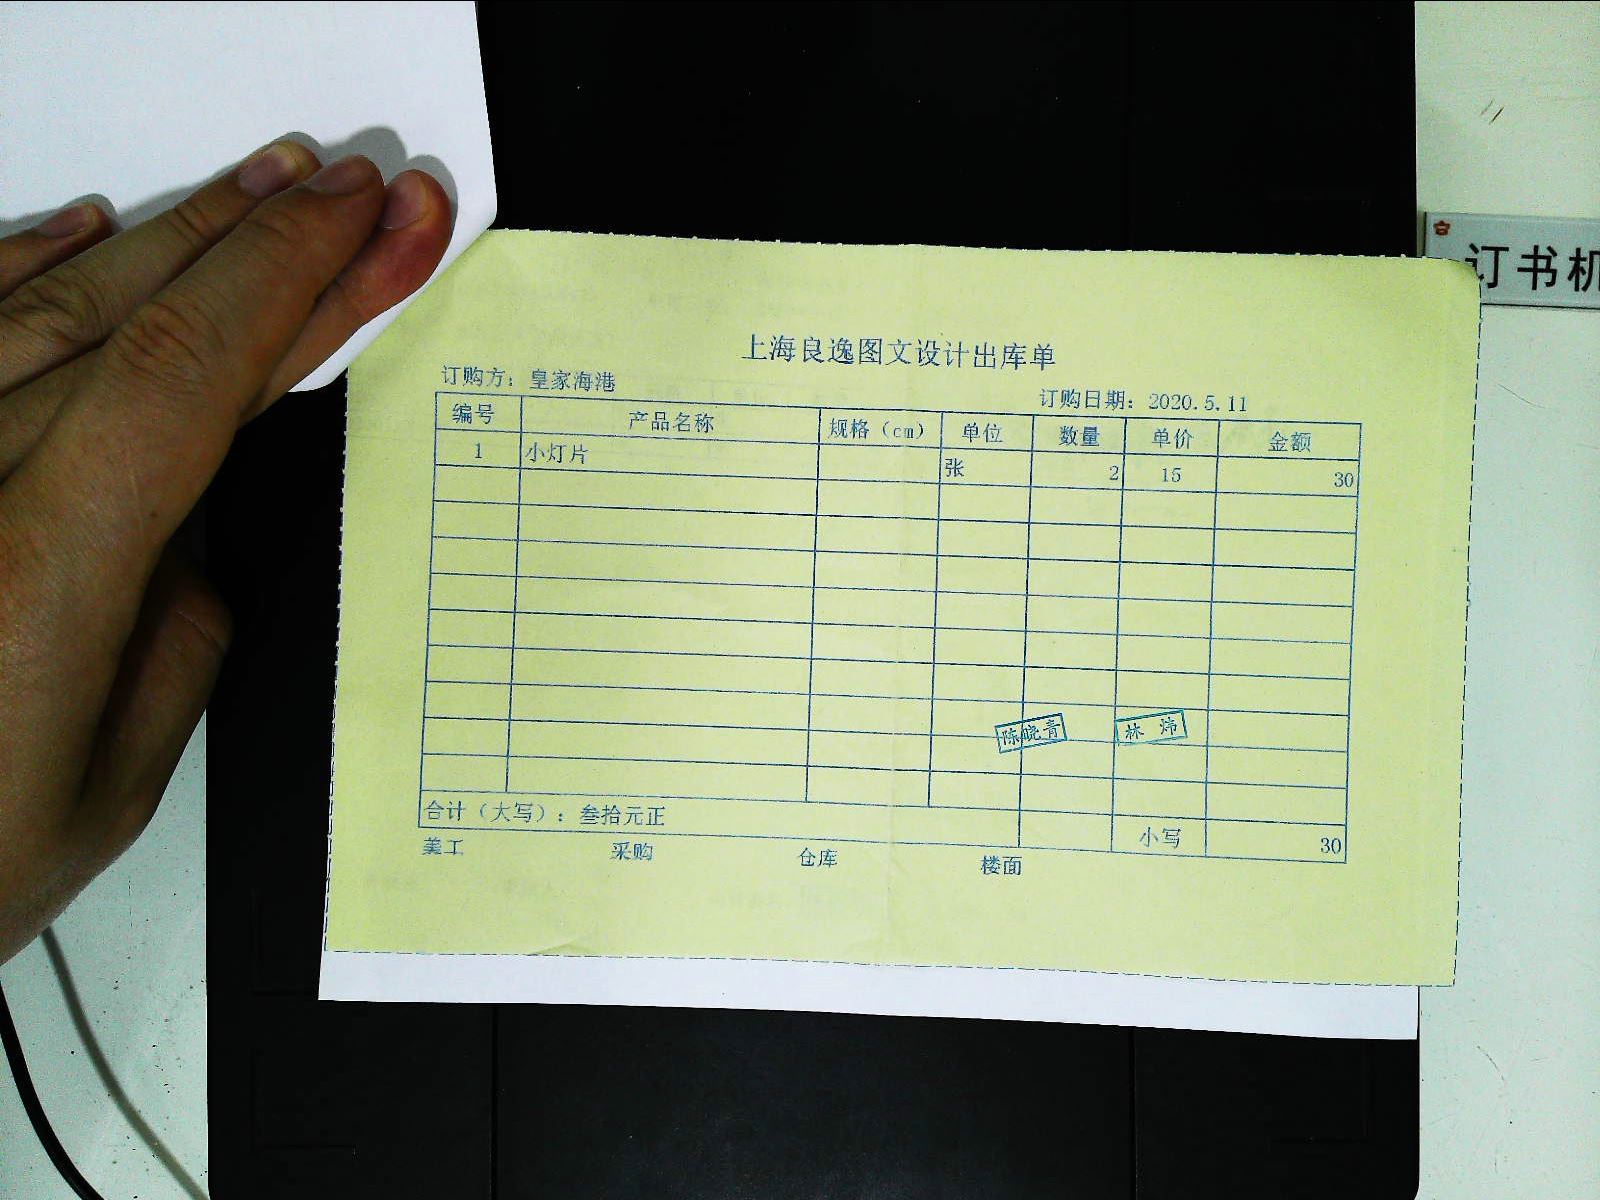 订书机
上海良逸图文设计出库单
订购方：皇家海港 订购日期：2020.5.11
编号 产品名称 规格（cm） 单位 数量 单价 金额
1 小灯片 张 2 15 30
陈晓青 林炜
合计（大写）：叁拾元正 小写 30
美工 采购 仓库 楼面